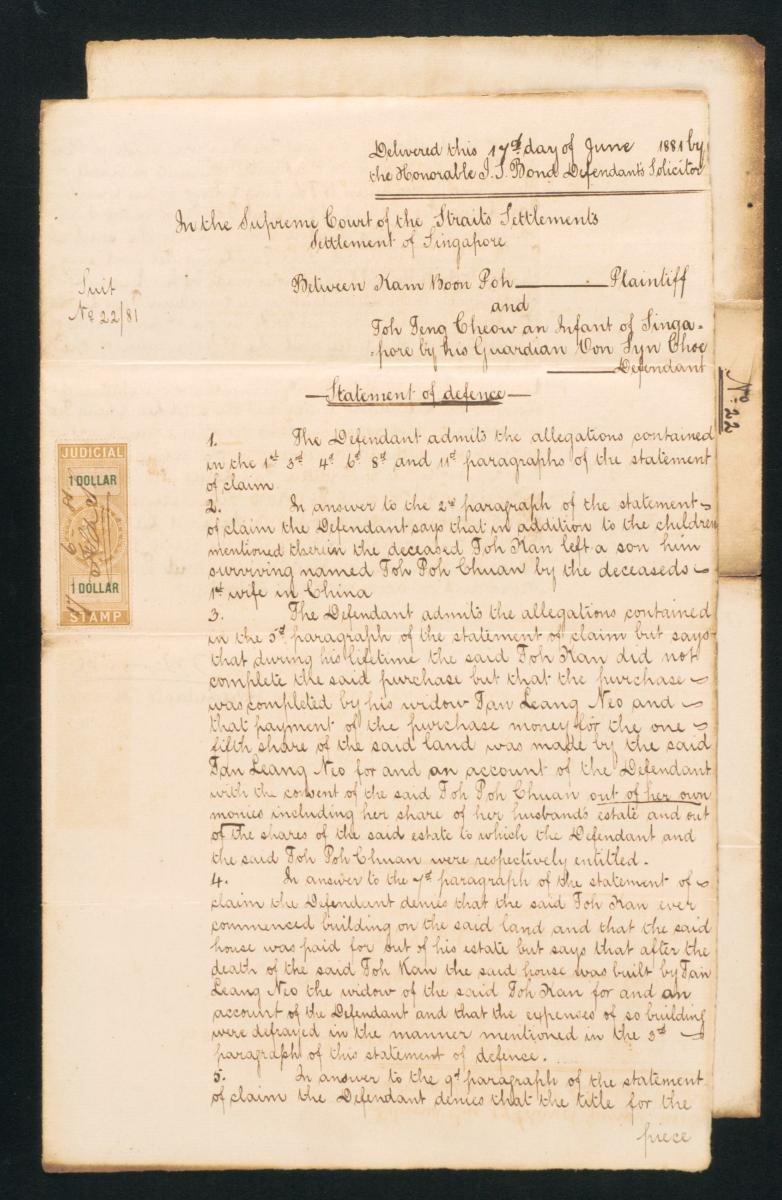 Delivered this 17th day of June 1881 by
the Honorable I. S. Bond Defendants Solicitor
In the Supreme Court of the Straits Settlements
Settlement of Singapore
Suit
No 22/81
Between Kam Boon Poh Plaintiff
and
Toh Teng Cheow an Infant of Singa-
-pore by his Guardian Von Syn Choe
Defendant
No. 22
Statement of defence
1. The Defendant admits the allegations contained
in the 1st 3rd 4th 6th 8th and 11th paragraphs of the statement
of claim
2. In answer to the 2nd paragraph of the statement
of claim the Defendant says that in addition to the children
mentioned therein the deceased Toh Kan left a son him
surviving named Toh Poh Chuan by the deceaseds
1st wife in China
3. The Defendant admits the allegations contained
in the 5th paragraph of the statement of claim but says
that during his lifetime the said Toh Kan did not
complete the said purchase but that the purchase
was completed by his widow Tan Leang Neo and
that payment of the purchase money for the one
fifth share of the said land was made by the said
Tan Leang Neo for and an account of the Defendant
with the consent of the said Toh Poh Chuan out of her own
monies including her share of her husband's estate and out
of the shares of the said estate to which the Defendant and
the said Toh Poh Chuan were respectively entitled.
4. In answer to the 7th paragraph of the statement of
claim the Defendant denies that the said Toh Kan ever
commenced building on the said land and that the said
house was paid for out of his estate but says that after the
death of the said Toh Kan the said house was built by Tan
Leang Neo the widow of the said Toh Kan for and an
account of the Defendant and that the expenses of so building
were defrayed in the manner mentioned in the 3rd
paragraph of this statement of defence.
5. In answer to the 9th paragraph of the statement
of claim the Defendant denies that the title for the
piece
JUDICIAL
1 DOLLAR
1 DOLLAR
STAMP